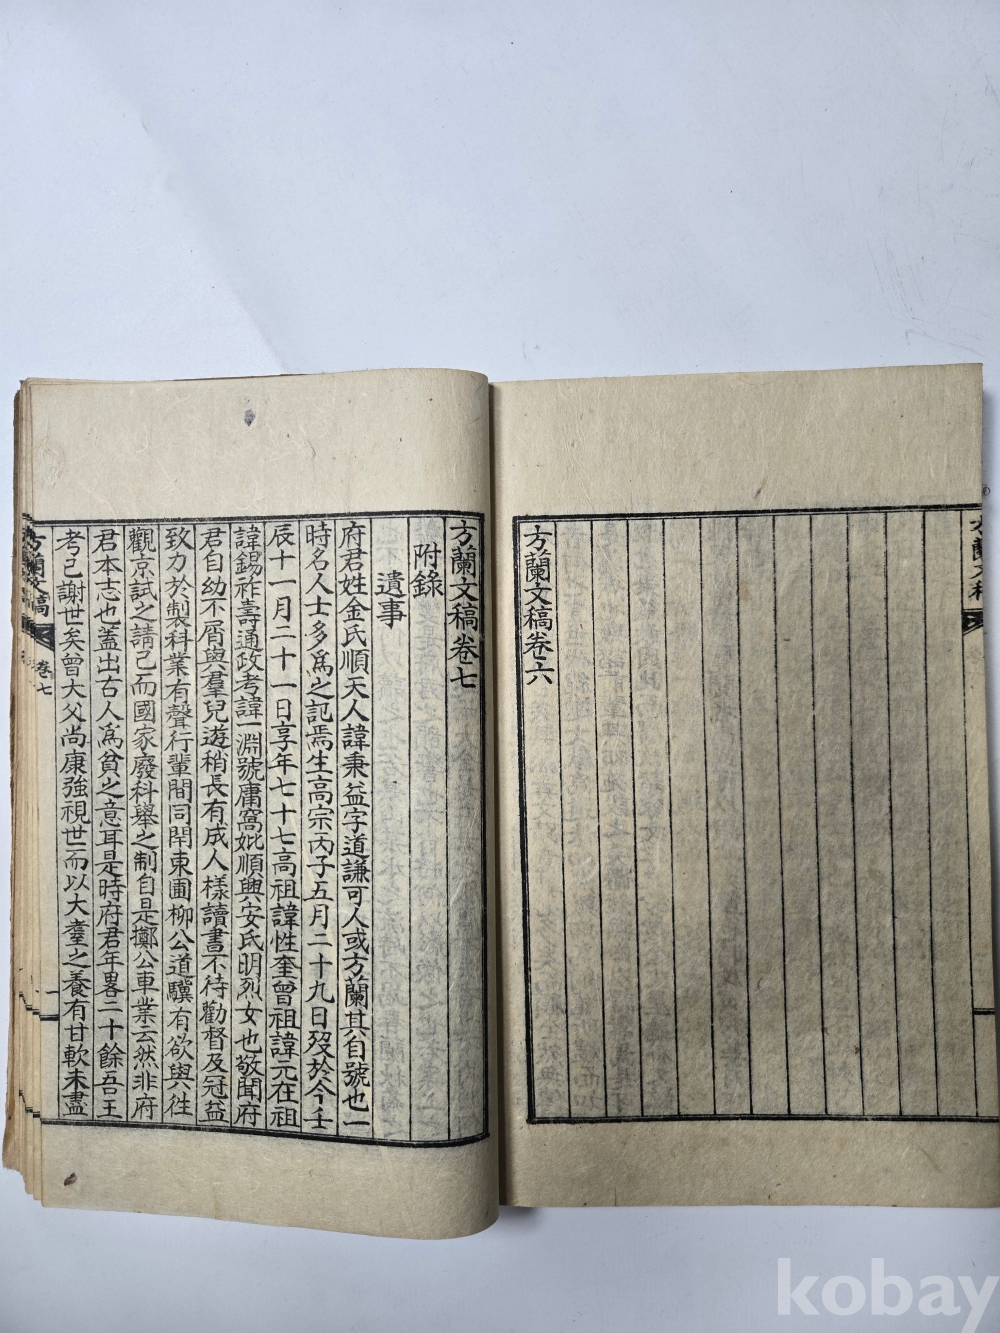 方蘭文稿卷六
方蘭文稿卷七
附錄
遺事
府君姓金氏順天人諱秉益字道謙可人或方蘭其自號也一
時名人士多爲之記焉生高宗丙子五月二十九日歿於今壬
辰十一月二十一日享年七十七高祖諱性奎曾祖諱元在祖
諱錫祚壽通政考諱一淵號庸窩妣順興安氏明烈女也敬聞府
君自幼不屑與羣兒遊稍長有成人樣讀書不待勸督及冠益
致力於製科業有聲行輩間同閈東圃柳公道驥有欲與徃
觀京試之請已而國家廢科舉之制自是擲公車業云然非府
君本志也蓋出古人爲貧之意耳是時府君年畧二十餘吾王
考已謝世矣曾大父尚康強視世而以大耋之養有甘軟未盡
方蘭文稿
卷七
一
kobay